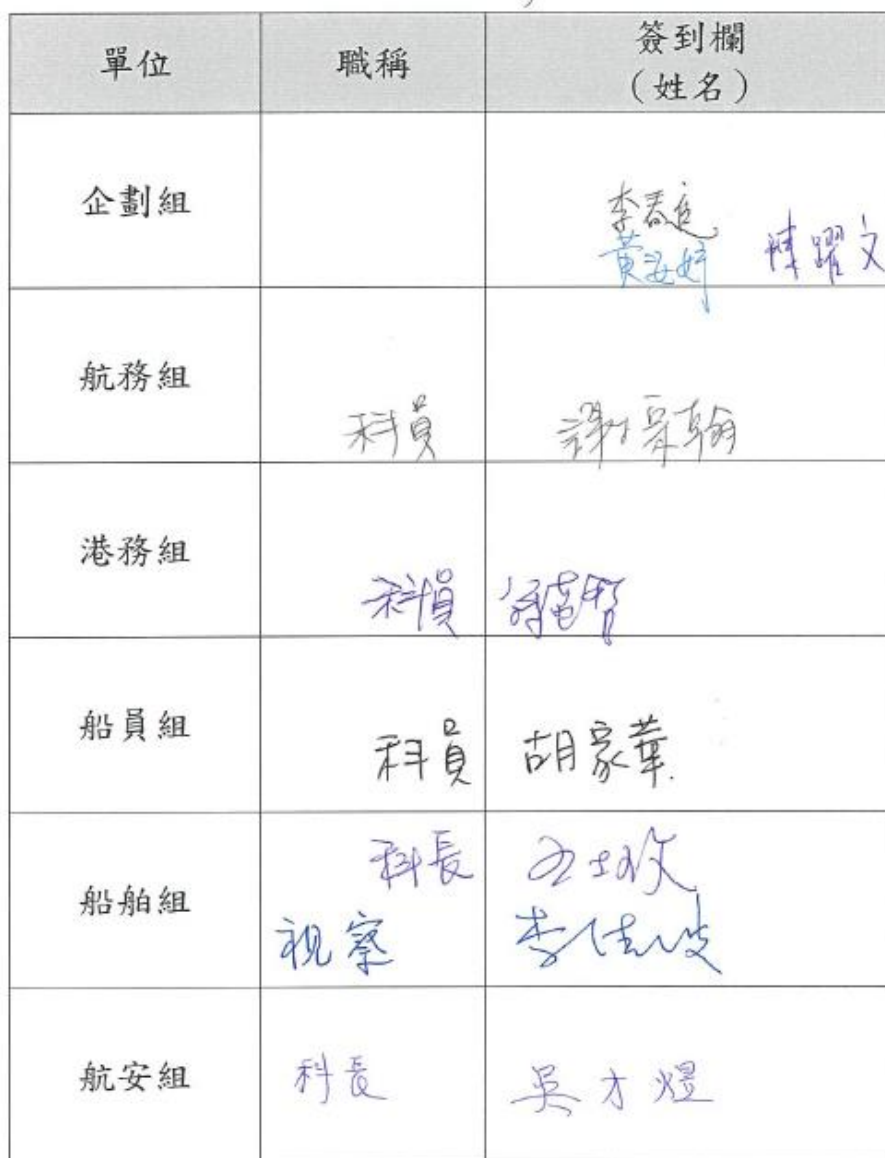 單位 職稱 簽到欄
(姓名)
企劃組
李春庭
黃 陳躍文
航務組
科員 謝 翰
港務組
科員
船員組
科員 胡家華
船舶組
科長
視察 李佳
航安組 科長 吳才煜